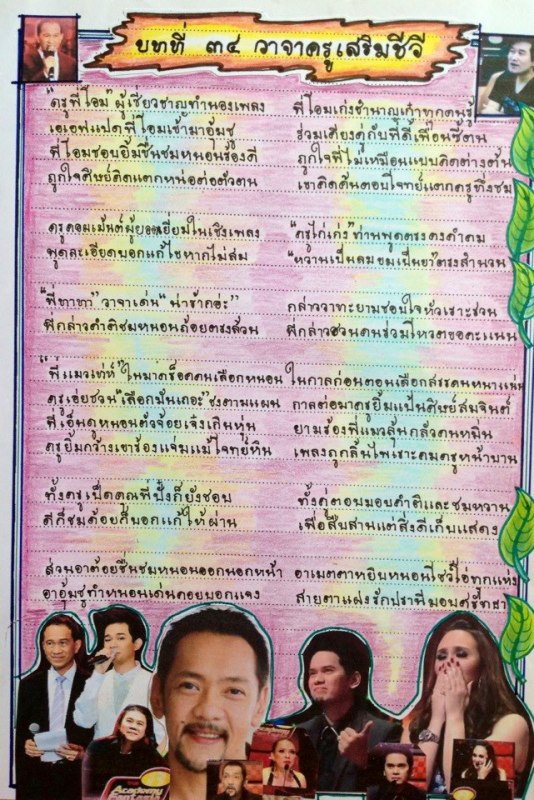 บทที่ ๓๔ วาจาครูเสริมชีวี
"ครูพี่โอม" ผู้เชี่ยวชาญทำนองเพลง พี่โอมเก่งชำนาญเก้าทุกคนรู้
เอเอฟแปดพี่โอมเข้ามาอุ้มชู ร่วมเคียงคู่กับพี่ดี้เพื่อนซี้ตน
พี่โอมชอบยิ้มชื่นชมหนอนช่องดี ถูกใจพี่ไม่เหมือนแบบคิดต่างต้น
ถูกใจศิษย์คิดแตกหน่อต่อตัวตน เขาคิดค้นตอบโจทย์แตกครูทึ่งชม
ครูคอมเม้นต์ผู้ยอดเยี่ยมในเชิงเพลง "ครูไก่เก่ง" ท่านพูดตรงคงคำคม
พูดละเอียดบอกแก้ไขหากไม่สม "หวานเป็นลมขมเป็นยา" ตรงสำนวน
"พี่ทาทา" วาจาเด่น "น่าร้ากอ่ะ" กล่าววาทะยามชอบใจหัวเราะร่วน
พี่กล่าวคำติชมหนอนถ้อยตรงล้วน พี่กล่าวชวนคนร่วมโหวตขอคะแนน
"พี่แมวเท่ห์" ในมาดร็อคคนเลือกหนอน ในกาลก่อนตอนเลือกสรรคนหนาแน่น
ครูเอ่ยชวน "เลือกมั้นเถอะ" ชงตามแผน กาลต่อมาครูยิ้มแป้นศิษย์สมจินต์
พี่เอ็นดูหนอนตัวจ้อยเจ๋งเกินหุ่น ยามร้องพี่แมวลุ้นกลัวคนหมิ่น
ครูยิ้มกว้างเขาร้องแจ่มแม้โจทย์หิน เพลงถูกลิ้นไพเราะคมครูหน้าบาน
ทั้งครูเป็ดคุณพี่ปิ้งก็ยังชอบ ทั้งคู่ตอบมอบคำติและชมหวาน
ดีก็ชมด้อยก็บอกแก้ให้ผ่าน เพื่อสืบสานแต่สิ่งดีเก็บแสดง
ส่วนอาต้อยชื่นชมหนอนออกนอกหน้า อาเมตตาหยิบหนอนโชว์โอ่ทุกแห่ง
อาอุ้มชูทำหนอนเด่นคอยบอกแจง สายตาแฝงรักปรานีมอบศรัทธา
Academy
Fantasia